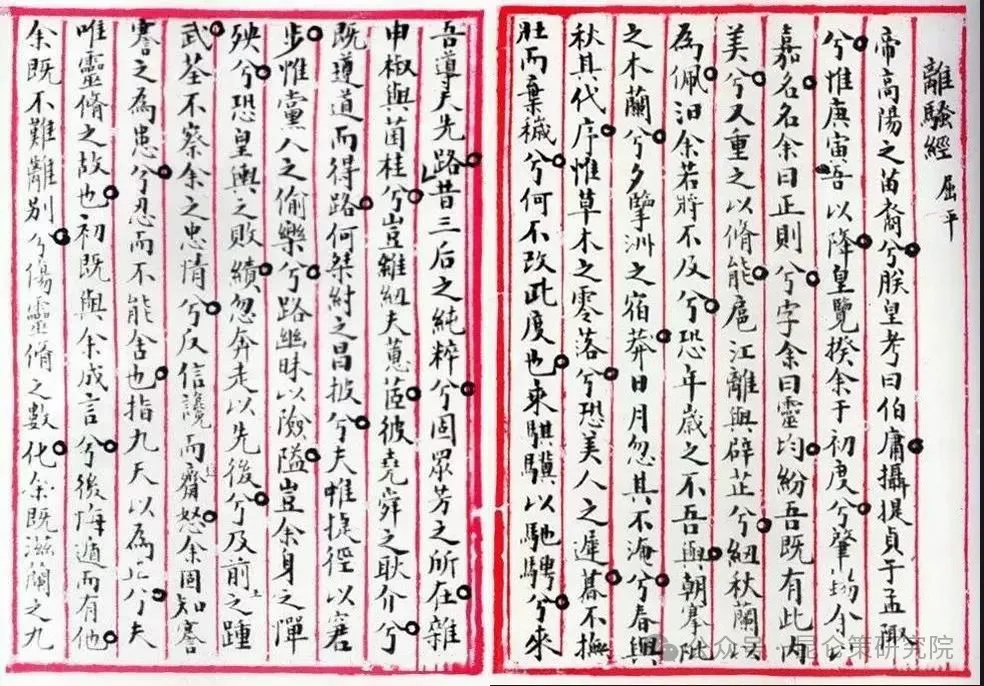 離騷經 屈平
帝高陽之苗裔兮朕皇考曰伯庸攝提貞于孟陬
兮惟庚寅吾以降皇覽揆余于初度兮肇錫余以
嘉名名余曰正則兮字余曰靈均紛吾既有此内
美兮又重之以脩能扈江離與辟芷兮紉秋蘭以
為佩汨余若將不及兮恐年歲之不吾與朝搴阰
之木蘭兮夕擥洲之宿莽日月忽其不淹兮春與
秋其代序惟草木之零落兮恐美人之遲暮不撫
壯而棄穢兮何不改此度也乘騏驥以馳騁兮來
吾導夫先路昔三后之純粹兮固眾芳之所在雜
申椒與菌桂兮豈維紉夫蕙茝彼堯舜之耿介兮
既遵道而得路何桀紂之昌披兮夫惟捷徑以窘
步惟黨人之偷樂兮路幽昧以險隘豈余身之憚
殃兮恐皇輿之敗績忽奔走以先後兮及前之踵
武荃不察余之忠情兮反信讒而齌怒余固知謇
謇之為患兮忍而不能舍也指九天以為正兮夫
唯靈脩之故也初既與余成言兮後悔遁而有他
余既不難離別兮傷靈脩之數化余既滋蘭之九
公众号 · 昆仑策研究院